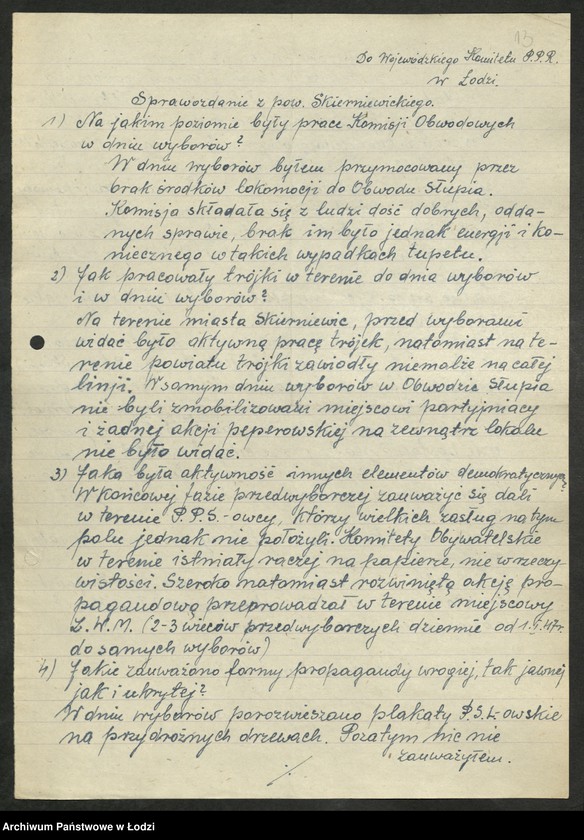 13
Do Wojewódzkiego Komitetu P.P.R.
w Łodzi.
Sprawozdanie z pow. Skierniewickiego.
1) Na jakim poziomie były prace Komisji Obwodowych
w dniu wyborów?
W dniu wyborów byłem przymocowany przez
brak środków lokomocji do Obwodu Słupia.
Komisja składała się z ludzi dość dobrych, odda-
nych sprawie, brak im było jednak energji i ko-
niecznego w takich wypadkach tupetu.
2) Jak pracowały trójki w terenie do dnia wyborów
i w dniu wyborów?
Na terenie miasta Skierniewic, przed wyborami
widać było aktywną pracę trójek, natomiast na te-
renie powiatu trójki zawiodły niemalże na całej
linji. W samym dniu wyborów w Obwodzie Słupia
nie byli zmobilizowani miejscowi partyjniacy
i żadnej akcji peperowskiej na zewnątrz lokalu
nie było widać.
3) Jaka była aktywność innych elementów demokratycznych?
W końcowej fazie przedwyborczej zauważyć się dali
w terenie P.P.S.-owcy, którzy wielkich zasług na tym
polu jednak nie położyli. Komitety Obywatelskie
w terenie istniały raczej na papierze, nie w rzeczy
wistości. Szeroko natomiast rozwiniętą akcję pro-
pagandową przeprowadzał w terenie miejscowy
Z.W.M. (2-3 wieców przedwyborczych dziennie od 1.I.47r.
do samych wyborów)
4) Jakie zauważono formy propagandy wrogiej, tak jawnej
jak i ukrytej?
W dniu wyborów porozwieszano plakaty P.S.L-owskie
na przydrożnych drzewach. Pozatym nic nie
zauważyłem.
./.
Archiwum Państwowe w Łodzi